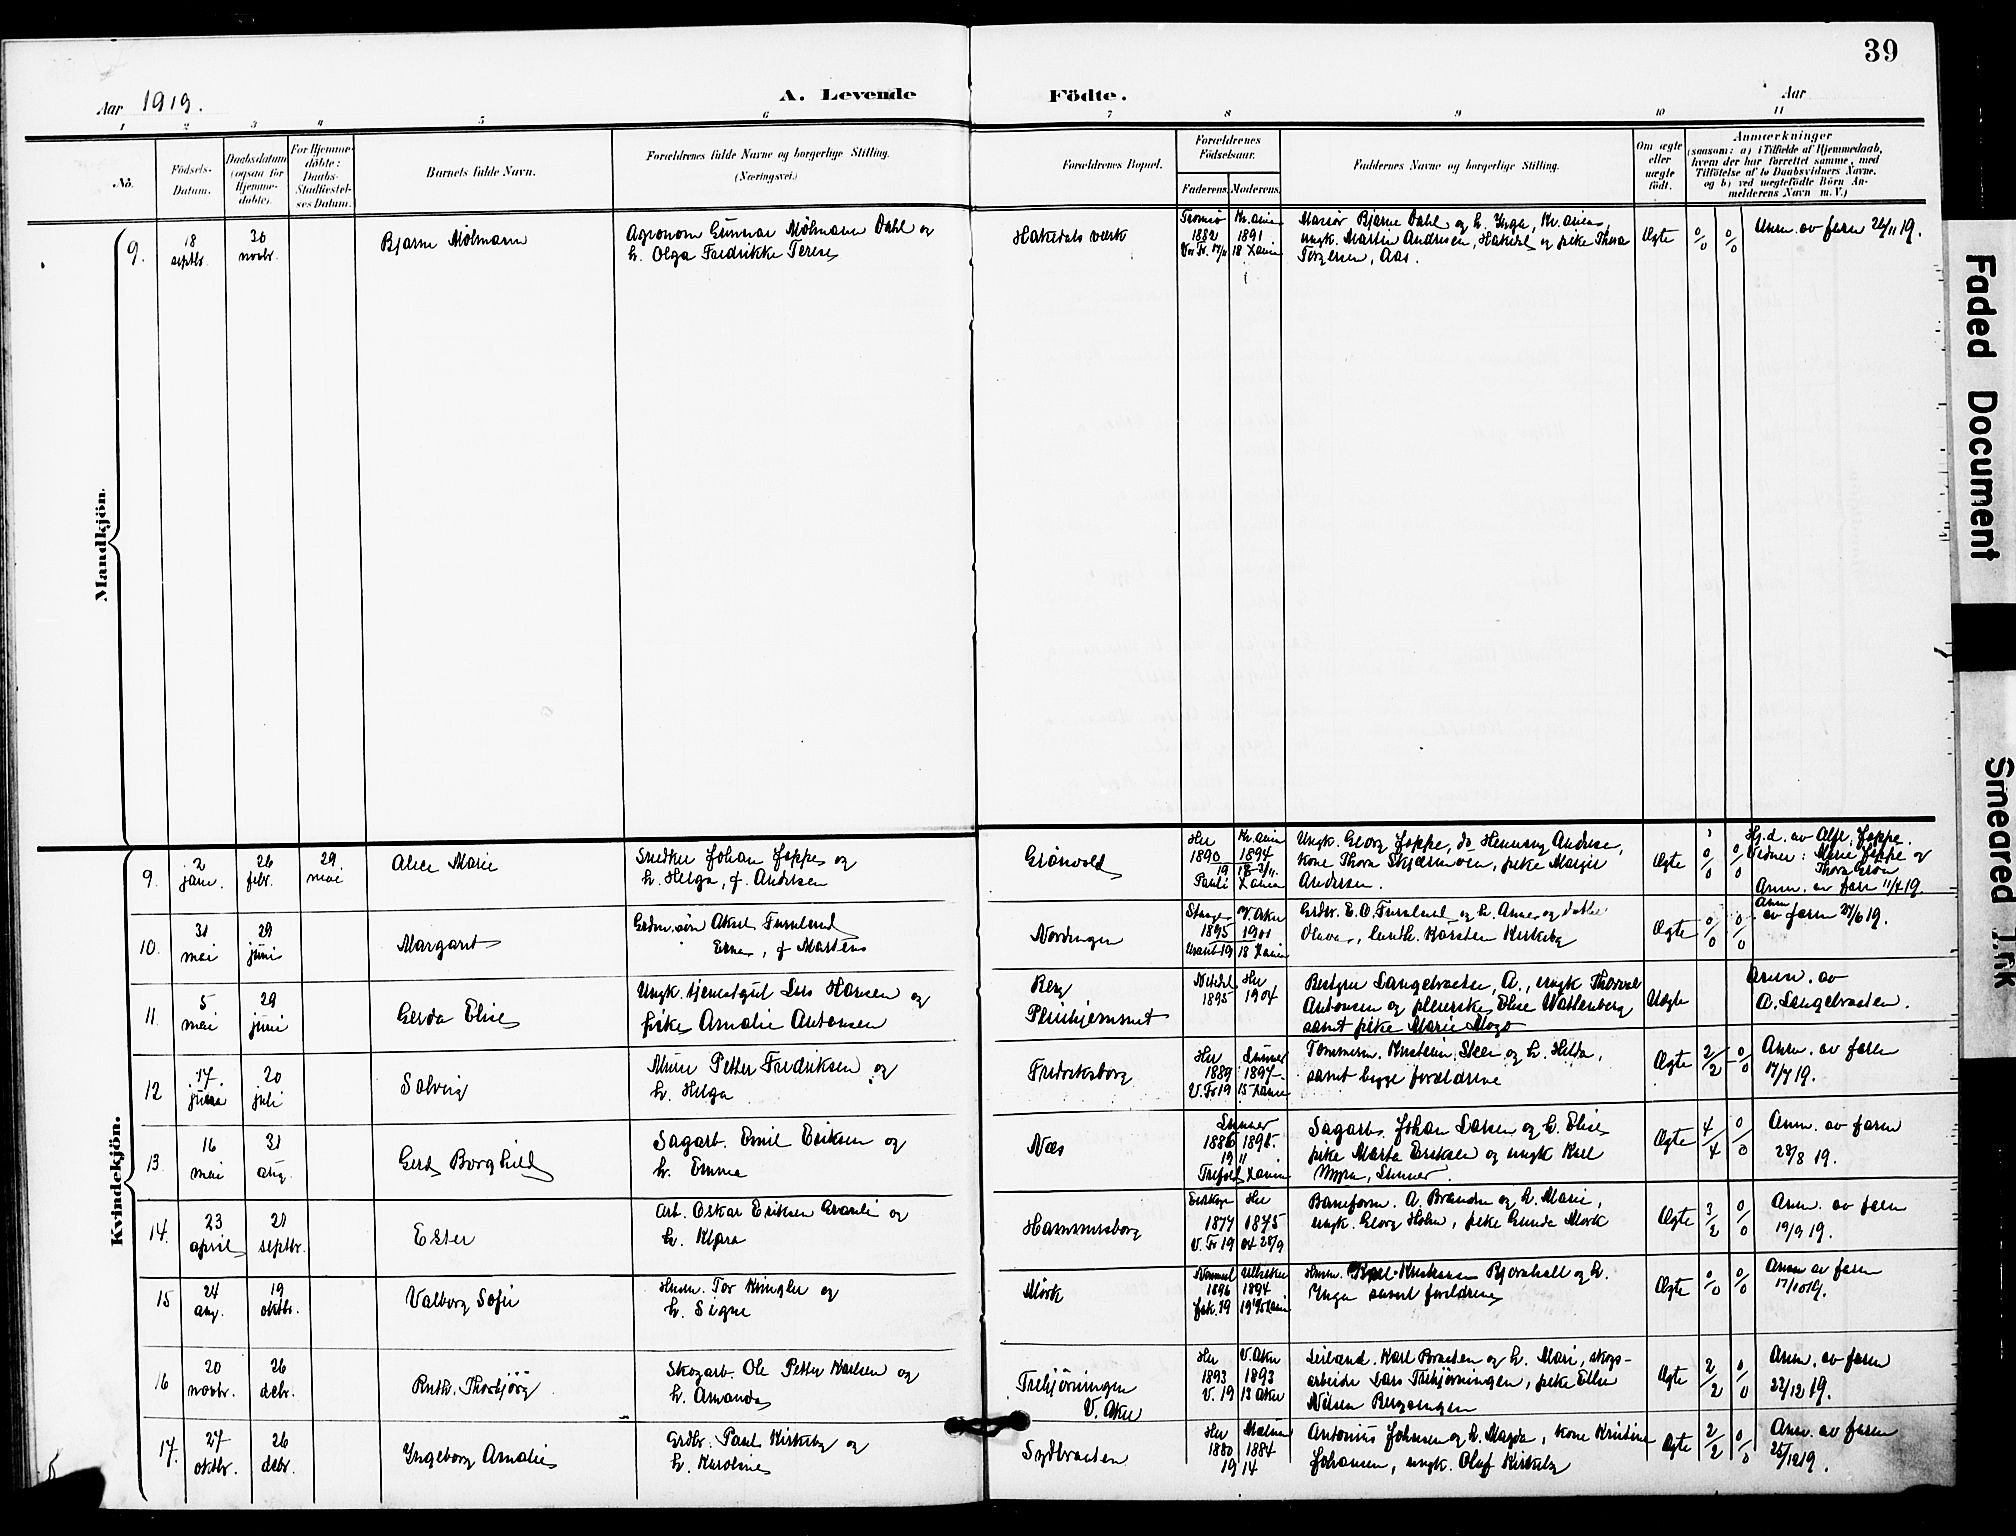 39
Aar 1919.
A. Levende
Födte.
Aar
1 2 3 4 5 6 7 8 9 10 11
No.
Födsels-
Datum.
Daabsdatum
(ogsaa for
Hjemme-
døbte).
For Hjemme-
døbte:
Daabs-
Stadfæstel-
ses Datum.
Barnets fulde Navn.
Forældrenes fulde Navne og borgerlige Stilling.
(Næringsvei.)
Forældrenes Bopæl.
Forældrenes
Födselsaar.
Faderens. Moderens.
Faddernes Navne og borgerlige Stilling.
Om ægte
eller
uægte
födt.
Anmærkninger
(saasom: a) i Tilfælde af Hjemmedaab,
hvem der har forrettet samme, med
Tilföielse af to Daabsvidners Navne,
og b) ved uægtefödte Börn An-
melderens Navn m. V.)
Mandkjön.
9.
18
septbr.
30
novbr.
Bjarne Mølmann
Agronom Gunnar Mølmann Dahl og
h. Olga Fredrikke Terese
Hakedals verk
Tromsø
1882
Kr.ania
1891
Bjarne Dahl og h. Inga, Kr.ania,
ungk. Martin Andresen, Hakedal og pike Thora
Torgersen, Aas.
Ægte
0/0
0/0
Anm. av faren 26/11 19.
Kvindekjön.
9.
2
jan.
26
febr.
29
mai
Alice Marie
Snedker Johan Joppe og
h. Helga, f. Andersen
Grönvold
Her
1890
19
Kr.ania
1894
Ungk. Georg Joppe, do Henning Andrese,
kone Thora, pike Margit
Andersen.
Ægte
0/0
0/0
Hj.d. av Alfr. Joppe.
Vidner: Marie Joppe og
Thora
Anm. av faren 11/4 19.
10.
31
mai
29
juni
Margarit
Aksel Furulund
Erna, f. Martens
Nordengen
Stange
1895
V. Aker
1901
Furulund og h. Anna og datter
Olava, Karsten Kirkeby
Ægte
0/0
0/0
Anm.
av faren 27/6 19.
11.
5
mai
29
juni
Gerda Elise
Ungk. tjenestegut Lars Hansen og
pike Amalie Antonsen
Berg
Pleiehjemmet
Nitedal
1895
Her
1904
Bestyrer Langebraaten, A., ungk. Thorvald
Antonsen og pleierske Elise Wattenberg
samt pike Marie Mogo
Uægte
Anm. av
A. Langebraaten.
12
17.
juni
20
juli
Solveig
Murer Petter Fredriksen og
h. Helga
Fredriksborg
Her
1889
V. Fr 19
Lunner
1897
Tømmerm. Kristian Steen og h. Hilda,
samt begge forældrene
Ægte
2/2
0/0
Anm. av faren
17/7 19.
13.
16
mai
31
aug.
Gerd Borghild
Sagarb. Emil Eriksen og
h. Emma
Næs
Lunner
1886 1895.
19 11
Sagarb. Johan Larsen og h. Elise
pike Marta Eriksen og ungk Karl
Myra, Lunner.
Ægte
4/4
0/0
Anm. av faren
28/8 19.
14.
23
april
21
septbr.
Ester
Arb. Oskar Eriksen Granli og
h. Klara
Hammersborg
1877
V. Fr 19
Her
1875
04 28/9
Baneform. A. Branden og h. Marie,
ungk. Georg Holm, pike Gunda Mork
Ægte
3/2
0/0
Anm. av faren
19/9 19.
15
24
aug.
19
oktbr.
Valborg Sofie
Tor Kringler og
h. Signe
Mörk
1896
Ullensaker
1894
Karl Kristiansen Bjornholt og h.
Inga samt forældrene
Ægte
0/0
0/0
Anm av faren
17/10 19.
16
20
novbr.
26
debr.
Ruth Thorbjörg
Skogarb. Ole Petter Karlsen og
h. Amanda
Trehjörningen
V. Aker
Her
1893
V. 19
V. Aker
1893
13 Aker
Karl Braaten og h. Mari, skogs-
arbeider Lars Trehjörningen, pike Ellen
Nilsen Bergsengen
Ægte
2/2
0/0
Anm. av faren
22/12 19.
17.
27
oktbr.
26
debr.
Ingeborg Amalie
Grdbr. Paul Kirkeby og
h. Karoline
Sydbraaten
Her
1880
19
1884
14
Antonius Johnsen og h. Magda, kone Kristine
Johansen, ungk. Oluf Kirkeby
Ægte
2/2
0/0
Anm. av faren
25/12 19.
Faded Document
Smeared Ink